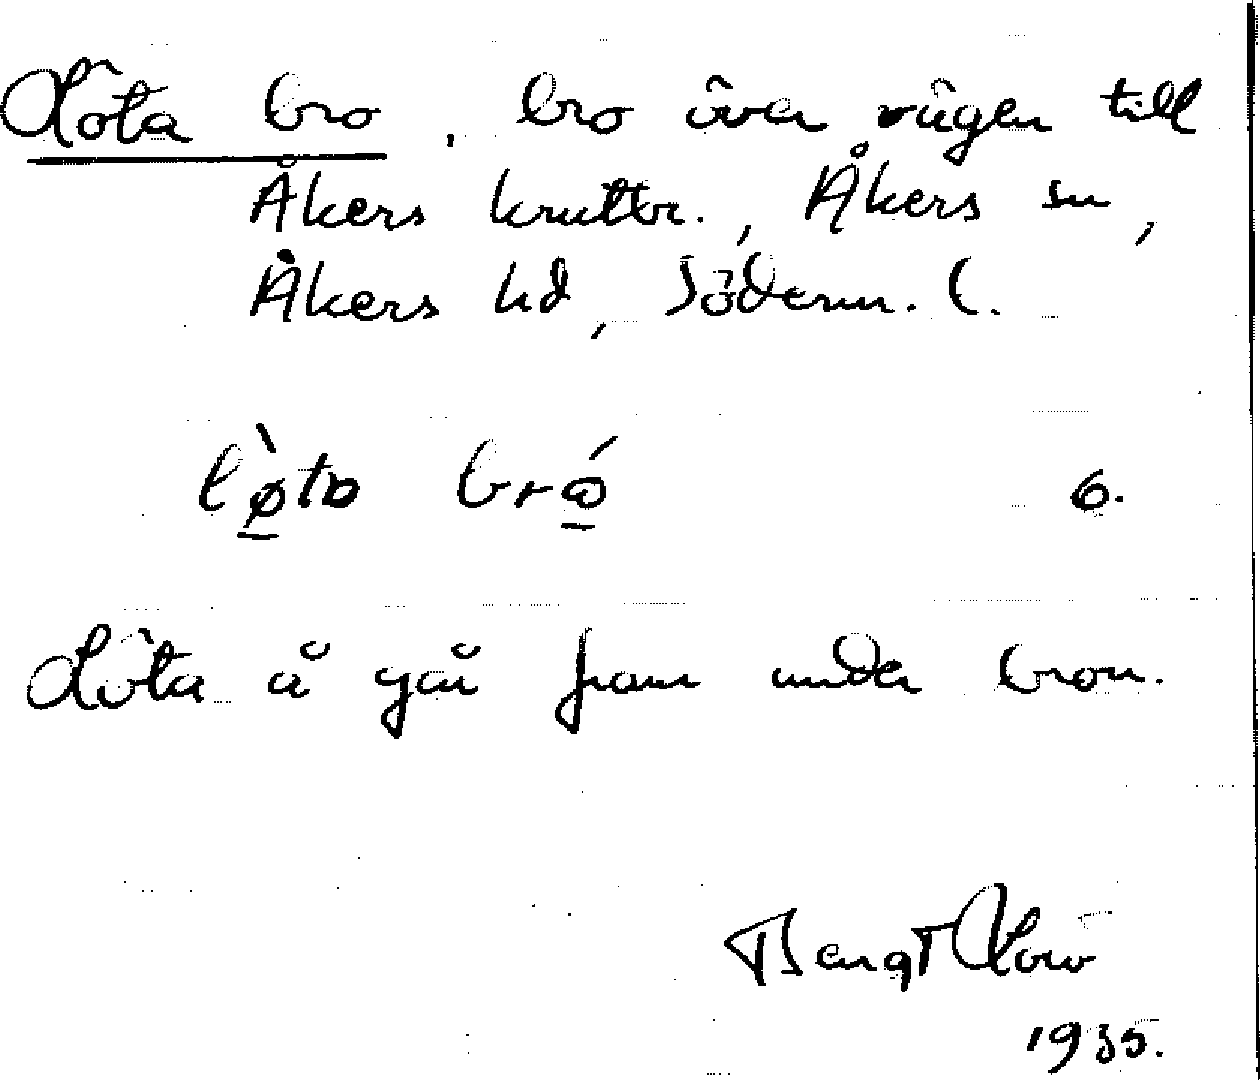 Löta bro, bro över vägen till
Åkers krutbr., Åkers sn,
Åkers hd, Söderm. l.
lø̀ta bró 6.
Löta å går fram under bron.
Bengt Löw
1935.